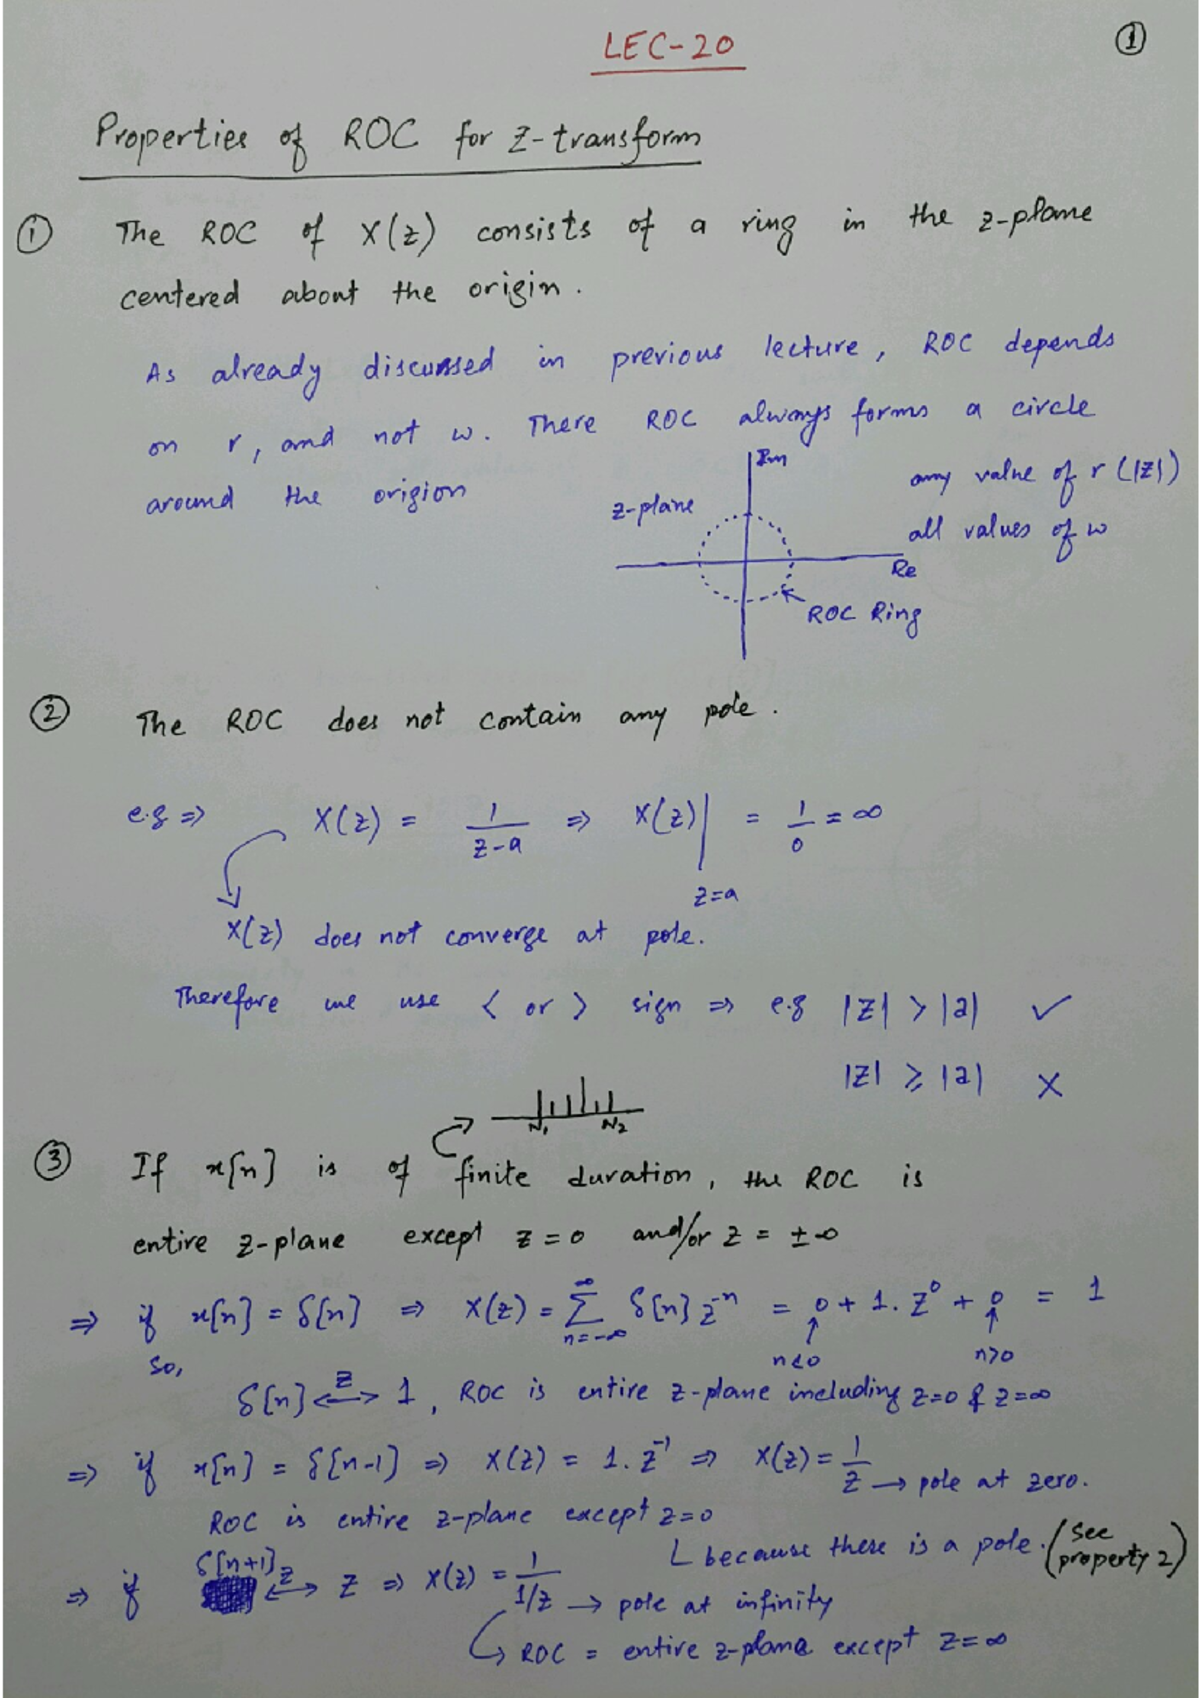 LEC-20
①
Properties of ROC for Z-transform
① The ROC of X(z) consists of a ring in the z-plane
centered about the origin.
As already discussed in previous lecture, ROC depends
on r, and not w. There ROC always forms a circle
around the origion
Im
z-plane
any value of r (|z|)
all values of w
Re
ROC Ring
② The ROC does not contain any pole.
e.g ⇒ X(z) = 1/(z-a) ⇒ X(z)| = 1/0 = ∞
z=a
X(z) does not converge at pole.
Therefore we use < or > sign ⇒ e.g |z| > |a| ✓
|z| ≥ |a| X
N₁ N₂
③ If x[n] is of finite duration, the ROC is
entire z-plane except z = 0 and/or z = ±∞
⇒ if x[n] = δ[n] ⇒ X(z) = ∑_{n=-∞}^{∞} δ[n] z^{-n} = 0 + 1. z⁰ + 0 = 1
n<0 n>0
So,
δ[n] ←Z→ 1, ROC is entire z-plane including z=0 & z=∞
⇒ if x[n] = δ[n-1] ⇒ X(z) = 1. z⁻¹ ⇒ X(z) = 1/z → pole at zero.
ROC is entire z-plane except z=0
because there is a pole. (see property 2)
⇒ if δ[n+1] ←Z→ z ⇒ X(z) = 1/(1/z) → pole at infinity
ROC = entire z-plane except z=∞